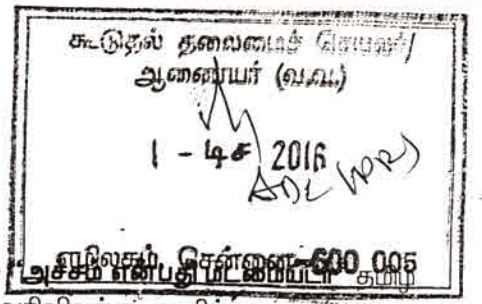 கூடுதல் தலைமைச் செயலர்/
ஆணையர் (வ.வ.)
1 - டிச 2016
ADC (PR)
எழிலகம், சென்னை-600 005
அச்சம் என்பது மடமையடா தமிழ்